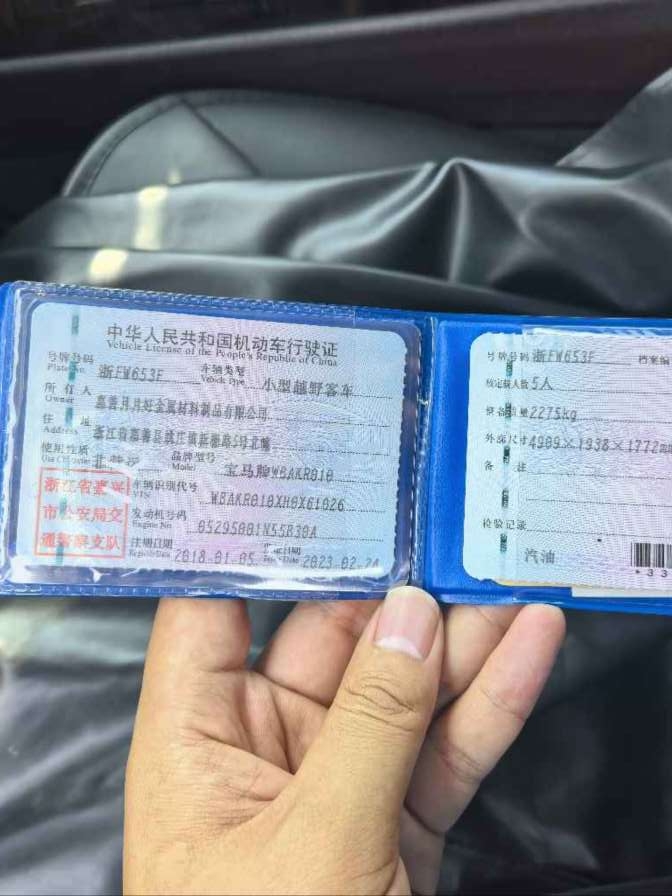 中华人民共和国机动车行驶证
Vehicle License of the People's Republic of China
号牌号码 浙FW653F 车辆类型 小型越野客车
Plate No. Vehicle Type
所有人 嘉善月月好金属材料制品有限公司
Owner
住址 浙江省嘉善县姚庄镇新景路5号北幢
Address
使用性质 非营运 品牌型号 宝马牌WBAKR010
Use Character Model
浙江省嘉兴
市公安局交
通警察支队
车辆识别代号 WBAKR010XH0X61026
VIN
发动机号码 05295001N55B30A
Engine No.
注册日期 2018-01-05 发证日期 2023-02-24
Register Date Issue Date
号牌号码 浙FW653F 档案编
核定载人数 5人
整备质量 2275kg
外廓尺寸 4909×1938×1772
备注
检验记录
汽油